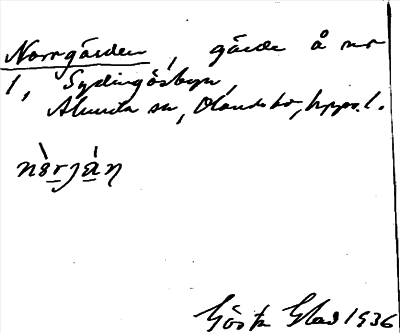 Norrgården, gårde å nr
1, Sydingösbyn,
Alunda sn, Olands hd, Upps. l.
Gösta Glad 1936